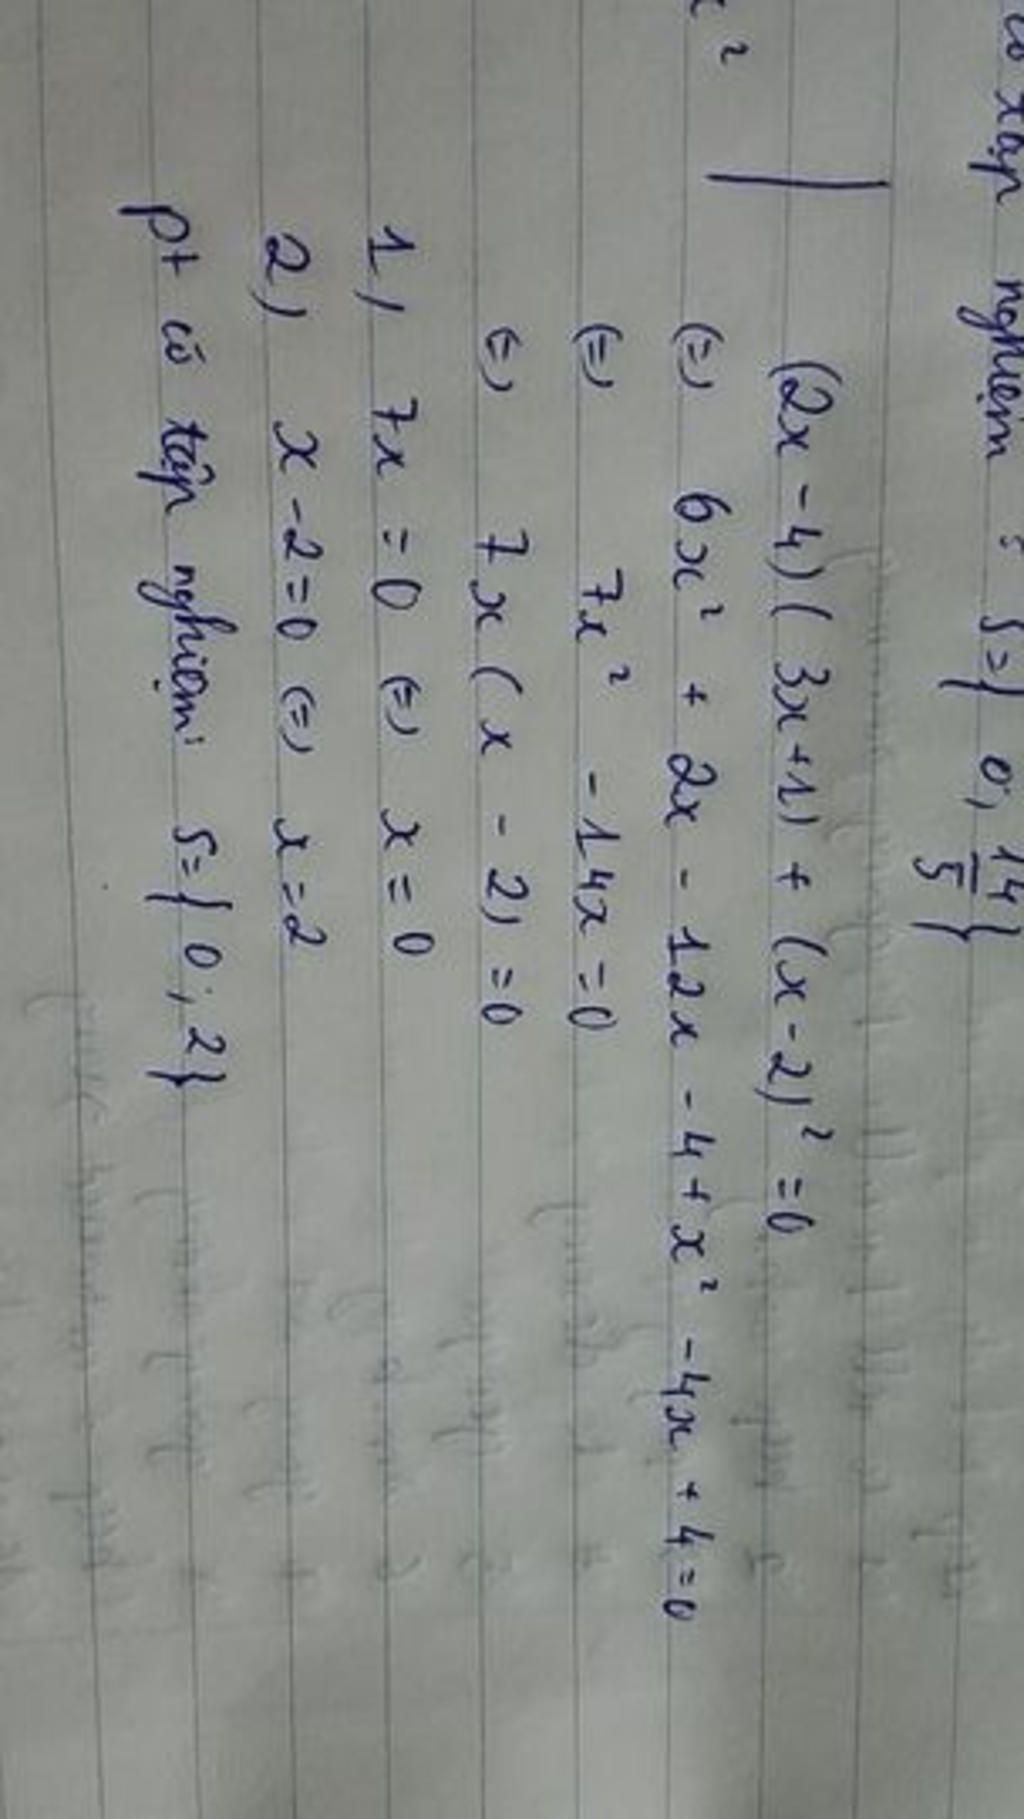 nghiệm : S = { 0 ; 14/5 }
x²
(2x - 4)(3x + 1) + (x - 2)² = 0
(=) 6x² + 2x - 12x - 4 + x² - 4x + 4 = 0
(=) 7x² - 14x = 0
(=) 7x (x - 2) = 0
1) 7x = 0 (=) x = 0
2) x - 2 = 0 (=) x = 2
pt có tập nghiệm: S = { 0 ; 2 }